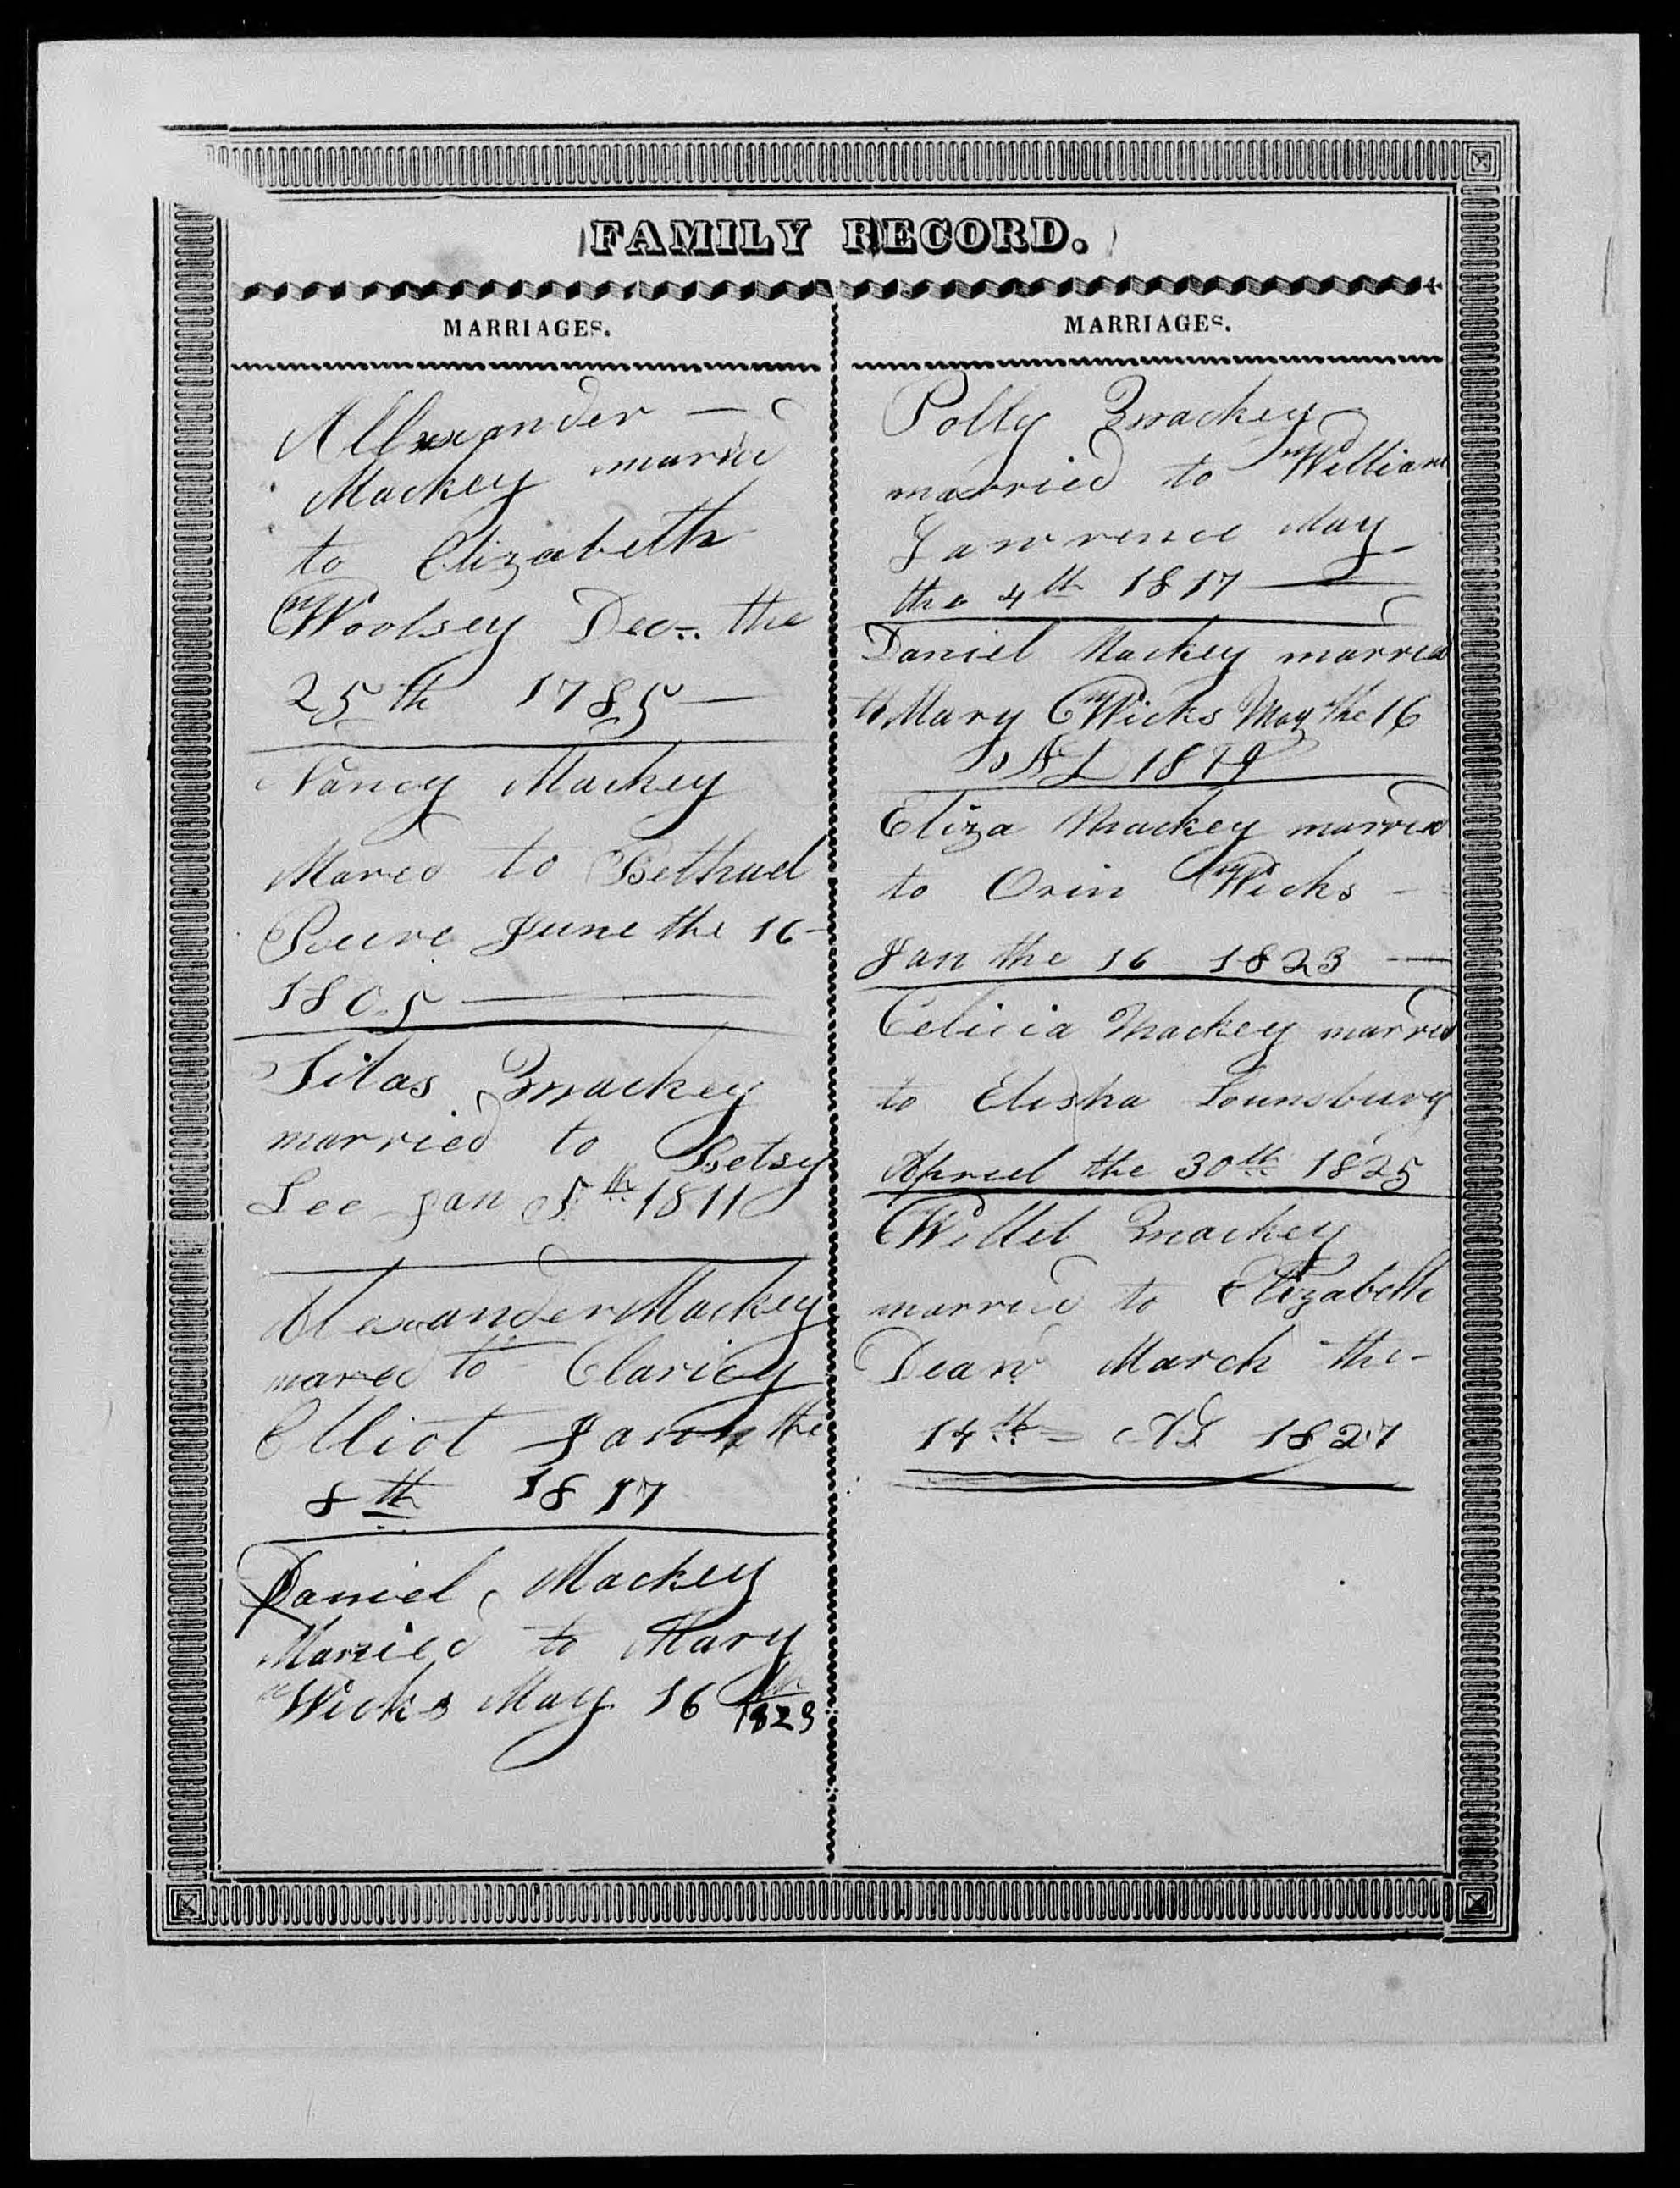 FAMILY RECORD.
MARRIAGES.
Allexander —
Mackey married
to Elizabeth
Woolsey Dec. the
25th 1785 —
Nancy Mackey
Mared to Bethuel
June the 16 -
1805 —
Silas Mackey
married to Betsy
Lee Jan 5th 1811
Alexander Mackey
mared to Claricy
Elliot the
8th 1817
Daniel Mackey
Married to Mary
Wicks May 16th
1823
MARRIAGES.
Polly Mackey
married to William
Lawrence May
the 4th 1817 —
Daniel Mackey married
to Mary Wicks May the 16
1819
Eliza Mackey married
to Orin Wicks -
Jan the 16 1823 —
Celicia Mackey married
to Elisha Lounsbury
Apriel the 30th 1825
Willet Mackey
married to Elizabeth
Dean March the -
14th = AD 1827